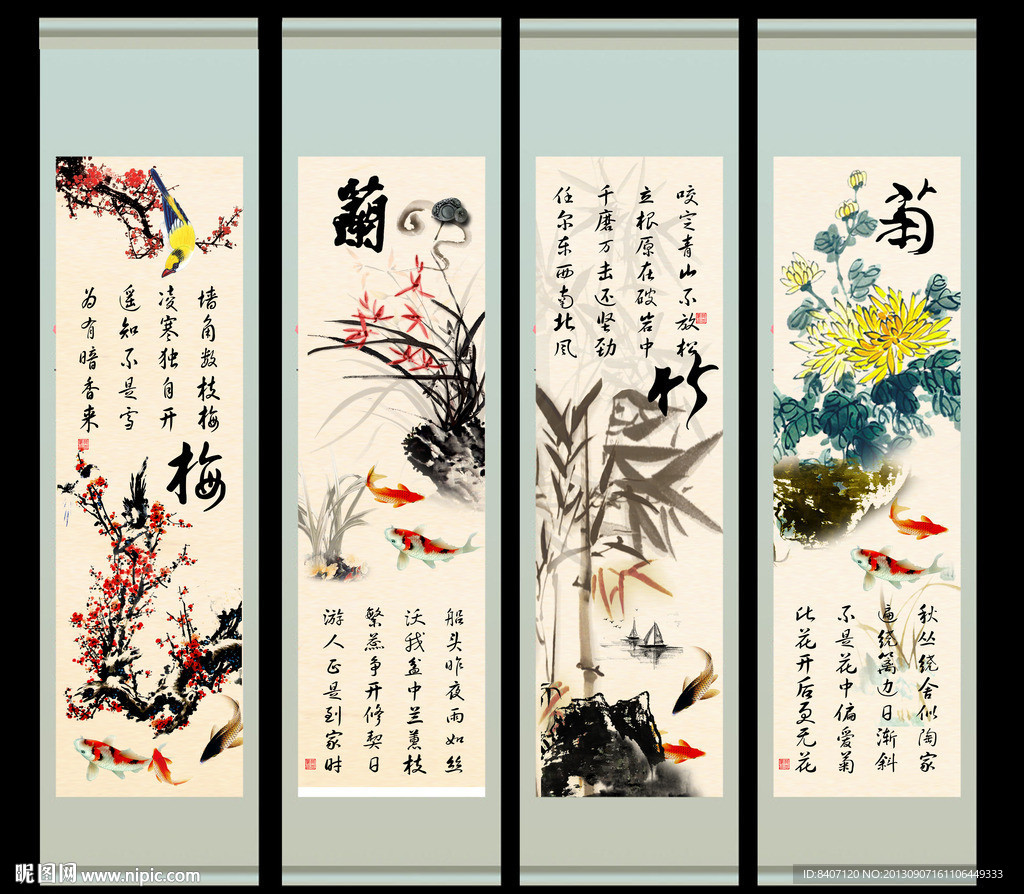 墙角数枝梅
凌寒独自开
遥知不是雪
为有暗香来
梅
蘭
船头昨夜雨如丝
沃我盆中兰蕙枝
繁蕊争开修契日
游人正是到家时
咬定青山不放松
立根原在破岩中
千磨万击还坚劲
任尔东西南北风
竹
菊
秋丛绕舍似陶家
遍绕篱边日渐斜
不是花中偏爱菊
此花开后更无花
昵图网 www.nipic.com
ID:8407120 NO:20130907161106449333